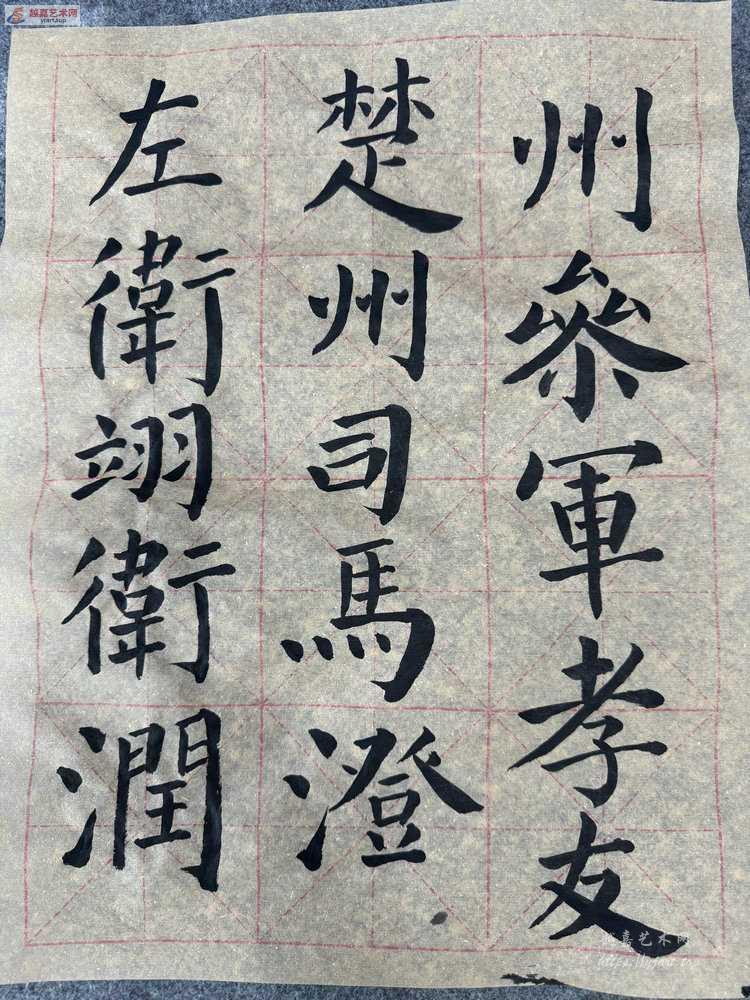 州參軍孝友
楚州司馬澄
左衛翊衛潤
越嘉艺术网
yjart.top